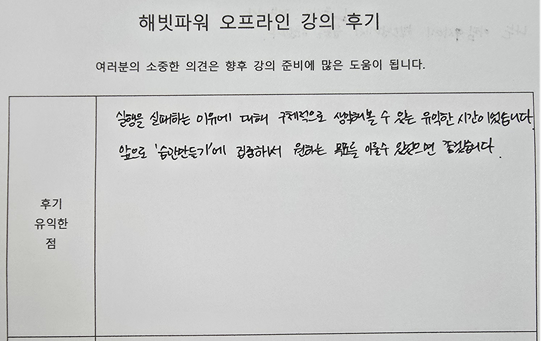 해빗파워 오프라인 강의 후기
여러분의 소중한 의견은 향후 강의 준비에 많은 도움이 됩니다.
실행을 실패하는 이유에 대해 구체적으로 생각해볼 수 있는 유익한 시간이었습니다.
앞으로 '습관만들기'에 집중하서 원하는 목표를 이룰수 있었으면 좋겠습니다.
후기
유익한
점